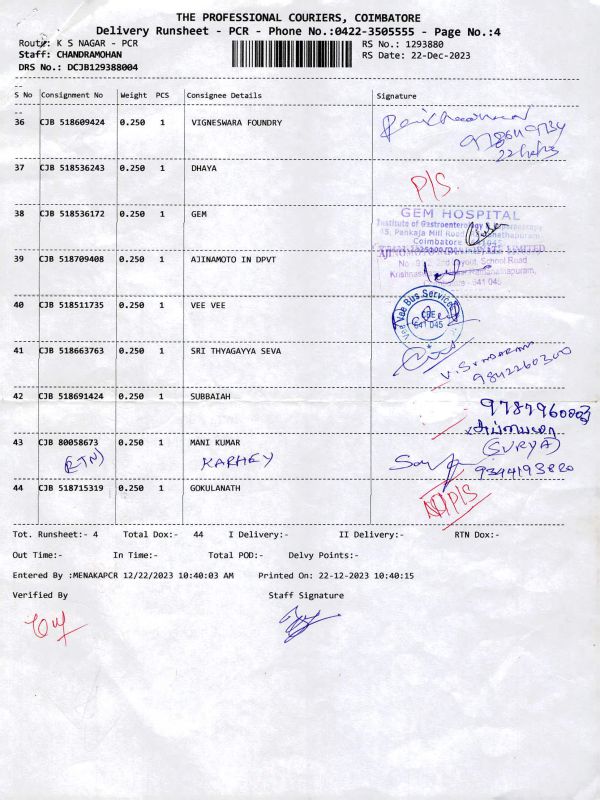 THE PROFESSIONAL COURIERS, COIMBATORE
Delivery Runsheet - PCR - Phone No.:0422-3505555 - Page No.:4
Route: K S NAGAR - PCR RS No.: 1293880
Staff: CHANDRAMOHAN RS Date: 22-Dec-2023
DRS No.: DCJB129388004
S No Consignment No Weight PCS Consignee Details Signature
36 CJB 518609424 0.250 1 VIGNESWARA FOUNDRY
37 CJB 518536243 0.250 1 DHAYA
P/S.
38 CJB 518536172 0.250 1 GEM
GEM HOSPITAL
Institute of Gastroenterology
45, Pankaja Mill Road
Coimbatore
39 CJB 518709408 0.250 1 AJINAMOTO IN DPVT
LIMITED
School Road
40 CJB 518511735 0.250 1 VEE VEE
Vee Vee Bus Service
CBE
641 045
41 CJB 518663763 0.250 1 SRI THYAGAYYA SEVA
V. SUNDARAM
9842260300
42 CJB 518691424 0.250 1 SUBBAIAH
43 CJB 80058673 0.250 1 MANI KUMAR
(RTN) KARHEY
(SURYA)
44 CJB 518715319 0.250 1 GOKULANATH
N/P/S
Tot. Runsheet:- 4 Total Dox:- 44 I Delivery:- II Delivery:- RTN Dox:-
Out Time:- In Time:- Total POD:- Delvy Points:-
Entered By :MENAKAPCR 12/22/2023 10:40:03 AM Printed On: 22-12-2023 10:40:15
Verified By Staff Signature